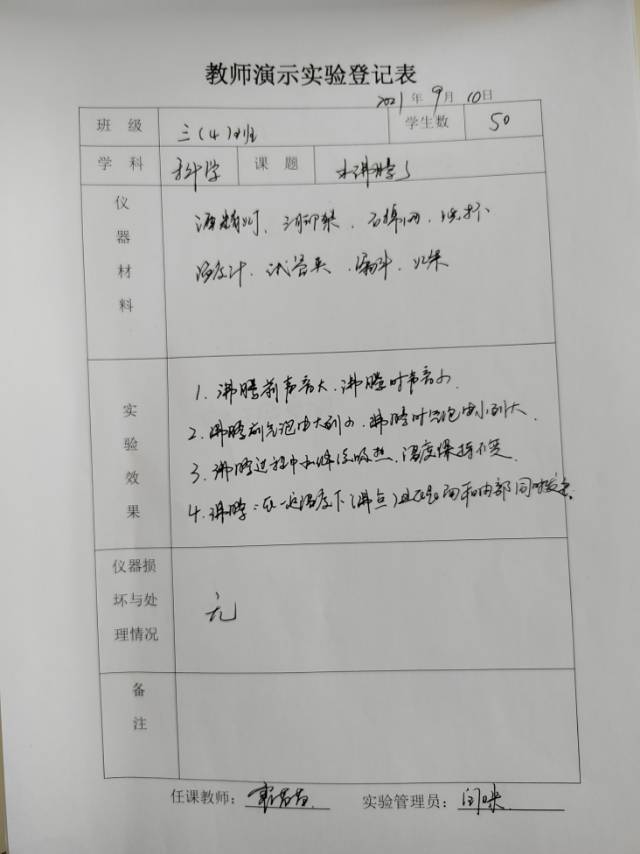 教师演示实验登记表
2021年9月10日
班级 三(4)班 学生数 50
学科 科学 课题 水沸腾了
仪器材料
酒精灯、三脚架、石棉网、烧杯
温度计、试管夹、漏斗、火柴
实验效果
1、沸腾前声音大、沸腾时声音小、
2、沸腾前气泡由大到小、沸腾时气泡由小到大、
3、沸腾过程中水继续吸热、温度保持不变、
4、沸腾:在一定温度下(沸点)且在表面和内部同时发生
仪器损坏与处理情况
无
备注
任课教师: 实验管理员: